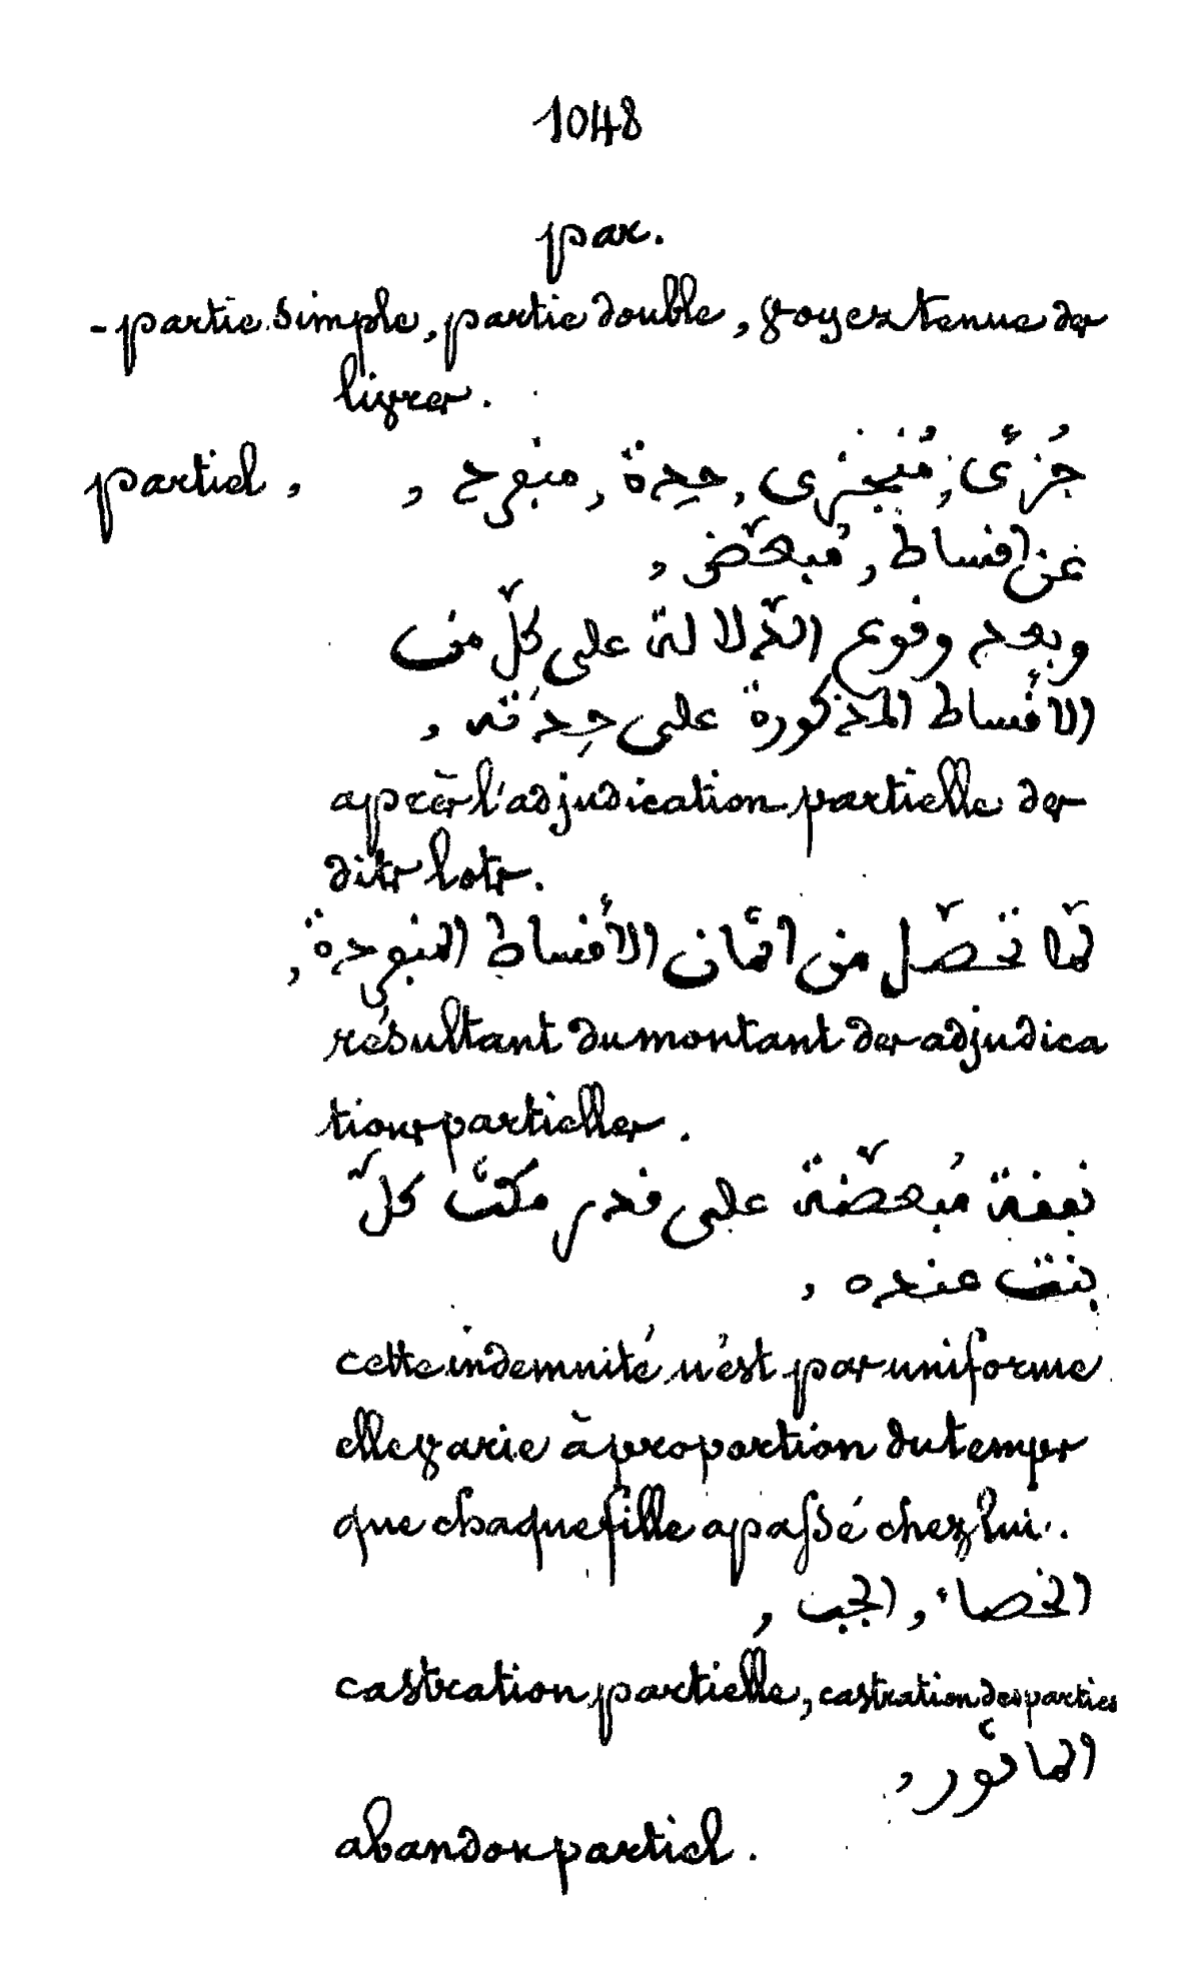 1048
par.
- partie simple, partie double, voyez tenue des
livres.
partiel, جُزئى, مُتجزى, حِدة, منفرد,
عن اقساط, مُبعّض,
وبعد وقوع الدّلالة على كلّ من
الأقساط المذكورة على حِدَته,
après l'adjudication partielle des
dits lots.
لمّا تحصّل من اثمان الأقساط المنفردة,
résultant du montant des adjudica
tions partielles.
نفقة مُبعّضة على قدر مكث كلّ
بنت عنده,
cette indemnité n'est pas uniforme
elle varie à proportion du temps
que chaque fille a passé chez lui.
الخصاء, الجب,
castration partielle, castration des parties
الماثور,
abandon partiel.